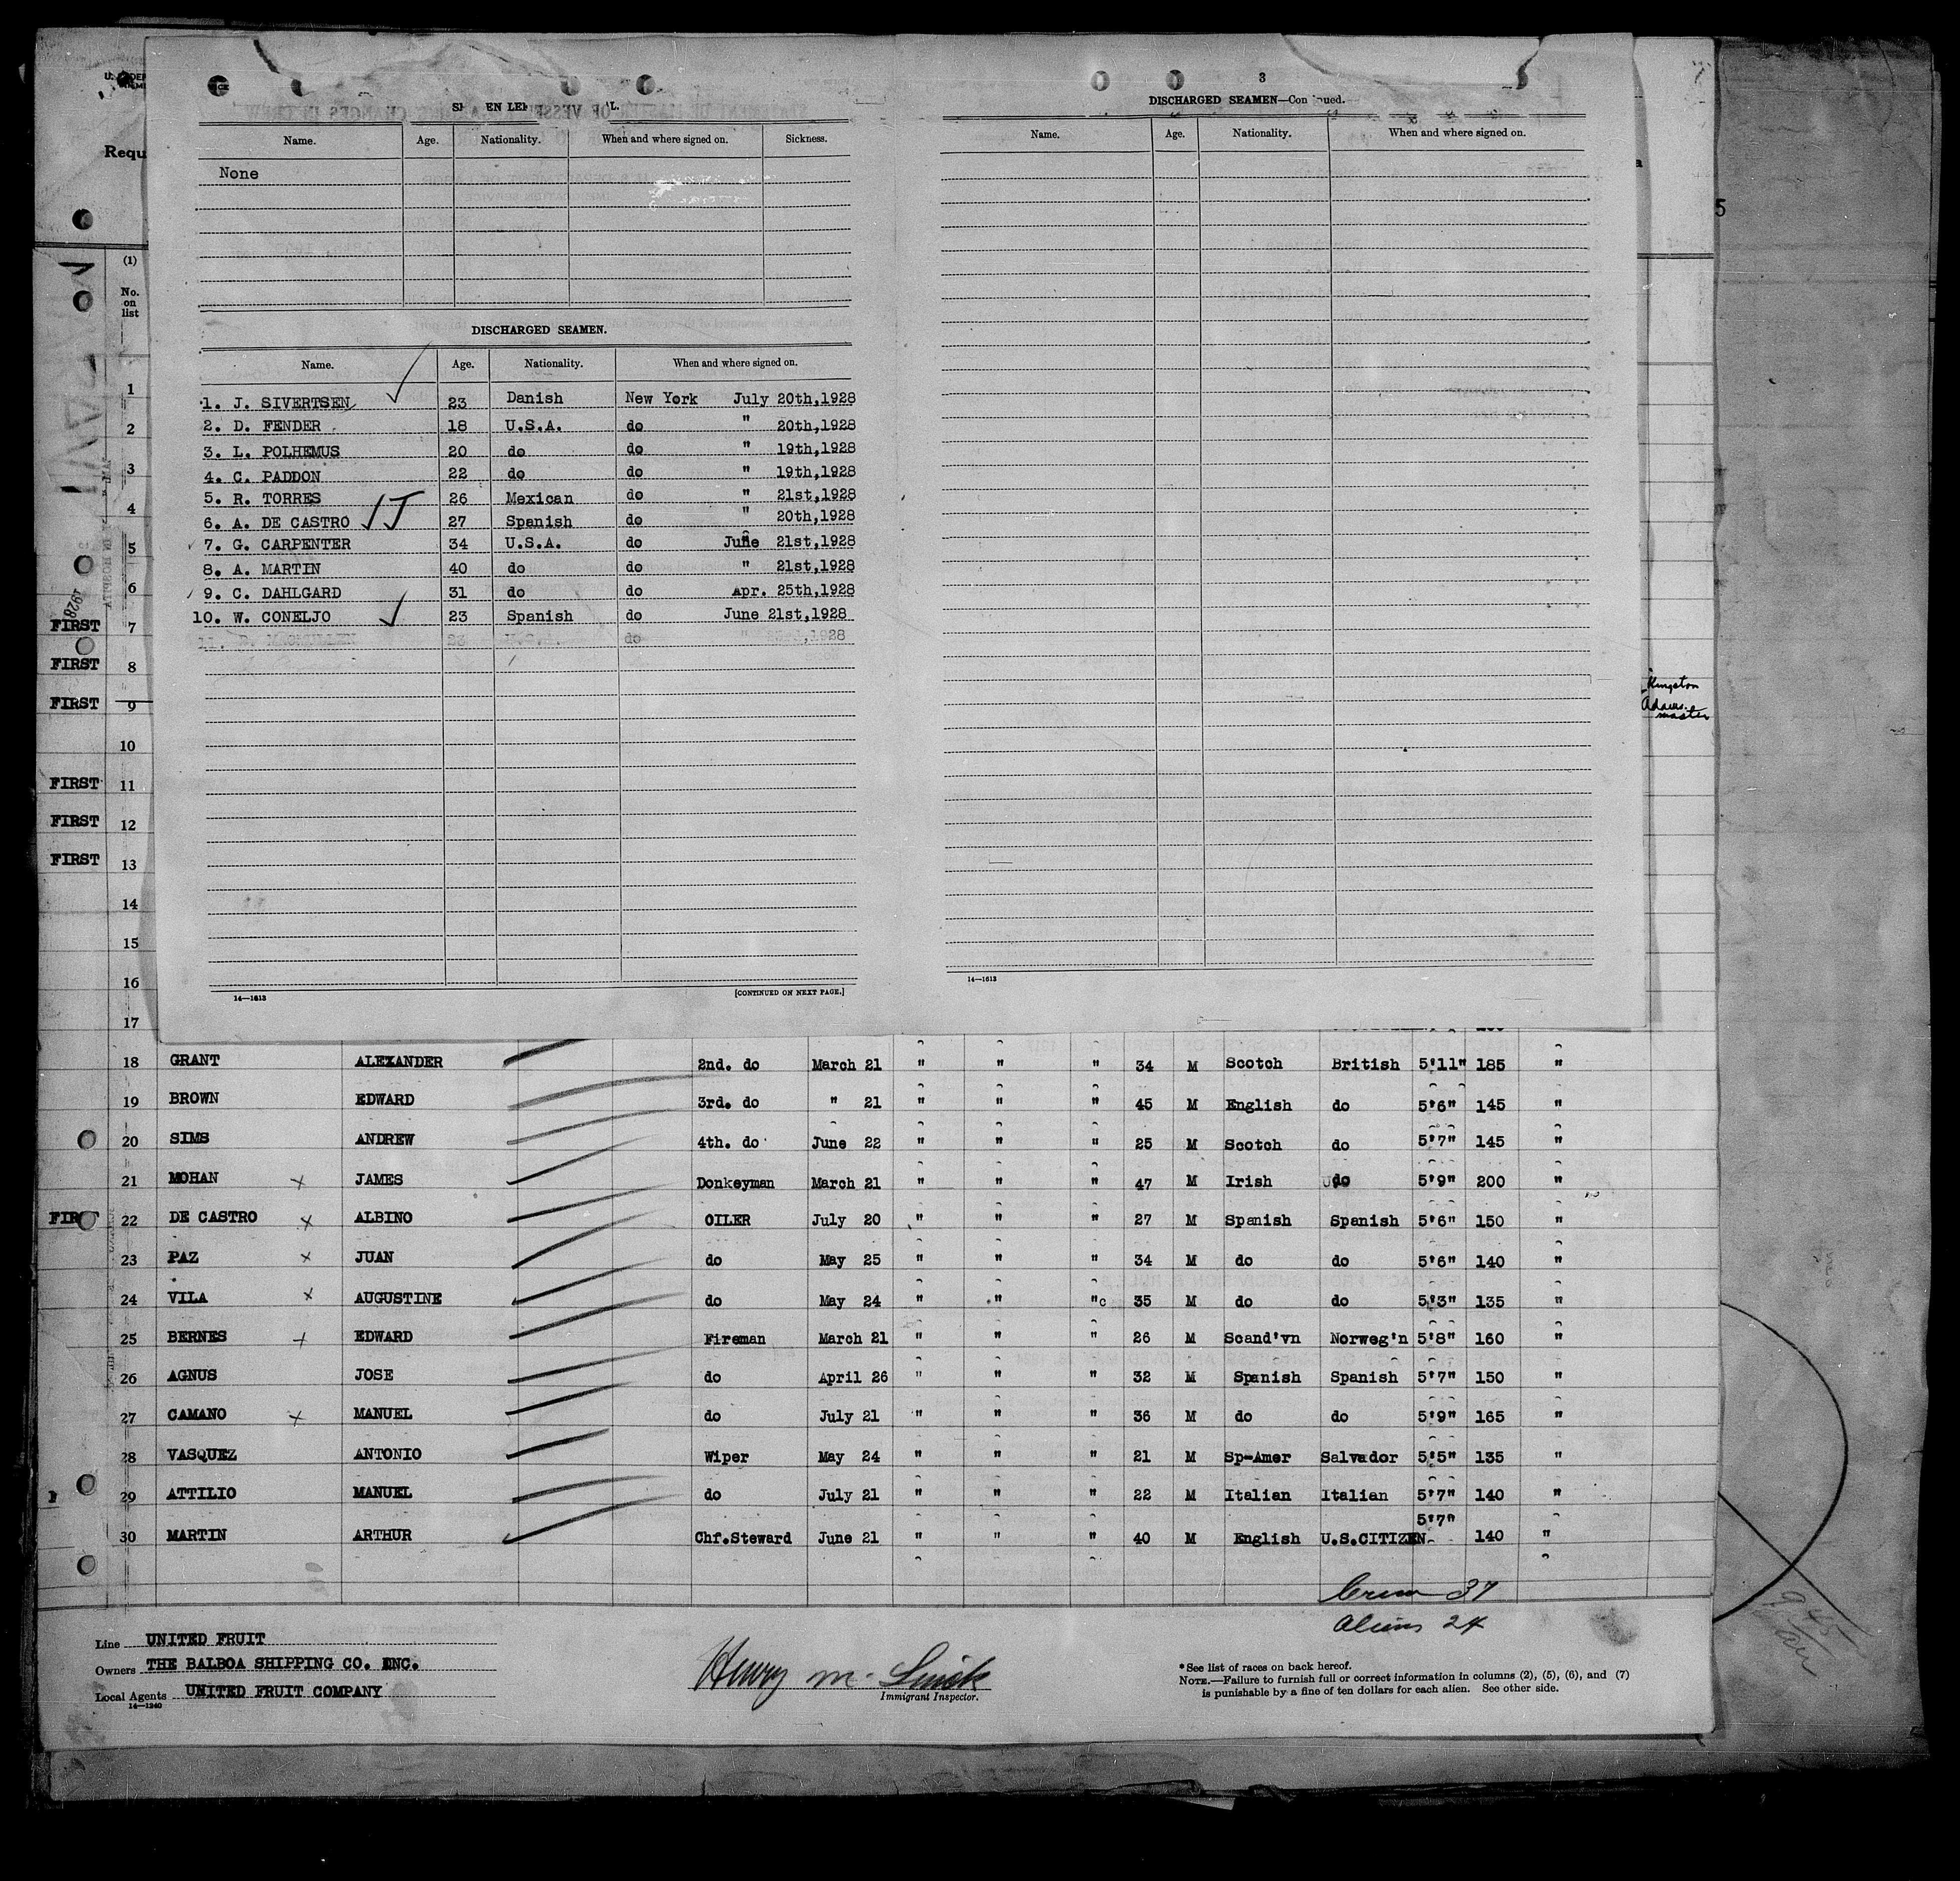 3
DISCHARGED SEAMEN—Con ued.
Name. Age. Nationality. When and where signed on. Sickness.
None
DISCHARGED SEAMEN.
Name. Age. Nationality. When and where signed on.
1. J. SIVERTSEN 23 Danish New York July 20th,1928
2. D. FENDER 18 U.S.A. do " 20th,1928
3. L. POLHEMUS 20 do do " 19th,1928
4. C. PADDON 22 do do " 19th,1928
5. R. TORRES 26 Mexican do " 21st,1928
6. A. DE CASTRO 27 Spanish do " 20th,1928
7. G. CARPENTER 34 U.S.A. do June 21st,1928
8. A. MARTIN 40 do do " 21st,1928
9. C. DAHLGARD 31 do do Apr. 25th,1928
10. W. CONELJO 23 Spanish do June 21st,1928
11. 23 do " 1928
14—1613 [CONTINUED ON NEXT PAGE.]
Name. Age. Nationality. When and where signed on.
14—1613
Requ
5
(1)
No.
on
list
1
2
3
4
5
6
1928
FIRST 7
FIRST 8
FIRST 9
10
FIRST 11
FIRST 12
FIRST 13
14
15
16
17
Kingston
Adam.
master
18 GRANT ALEXANDER 2nd. do March 21 " " " 34 M Scotch British 5'11" 185 "
19 BROWN EDWARD 3rd. do " 21 " " " 45 M English do 5'6" 145 "
20 SIMS ANDREW 4th. do June 22 " " " 25 M Scotch do 5'7" 145 "
21 MOHAN x JAMES Donkeyman March 21 " " " 47 M Irish do 5'9" 200 "
FIRST 22 DE CASTRO x ALBINO OILER July 20 " " " 27 M Spanish Spanish 5'6" 150 "
23 PAZ x JUAN do May 25 " " " 34 M do do 5'6" 140 "
24 VILA x AUGUSTINE do May 24 " " "c 35 M do do 5'3" 135 "
25 BERNES x EDWARD Fireman March 21 " " " 26 M Scand'vn Norweg'n 5'8" 160 "
26 AGNUS JOSE do April 26 " " " 32 M Spanish Spanish 5'7" 150 "
27 CAMANO x MANUEL do July 21 " " " 36 M do do 5'9" 165 "
28 VASQUEZ ANTONIO Wiper May 24 " " " 21 M Sp-Amer Salvador 5'5" 135 "
29 ATTILIO MANUEL do July 21 " " " 22 M Italian Italian 5'7" 140 "
30 MARTIN ARTHUR Chf.Steward June 21 " " " 40 M English U.S.CITIZEN 5'7" 140 "
Crew 37
Aliens 24
Line UNITED FRUIT
Owners THE BALBOA SHIPPING CO. INC.
Local Agents UNITED FRUIT COMPANY
14—1240
Henry Mc
Immigrant Inspector.
*See list of races on back hereof.
NOTE.—Failure to furnish full or correct information in columns (2), (5), (6), and (7)
is punishable by a fine of ten dollars for each alien. See other side.